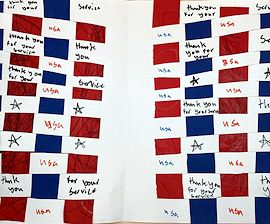 Service
usa
thank you
for your
Service
thank
you
usa
thank you
for your
Service
usa
USA
usa
thank
you
for your
Service
thank you
for your
usa
usa
thank you
for your
Service
usa
usa
usa
thank you
for your Service
usa
usa
usa
usa
usa
thank
you
for your
Service
usa